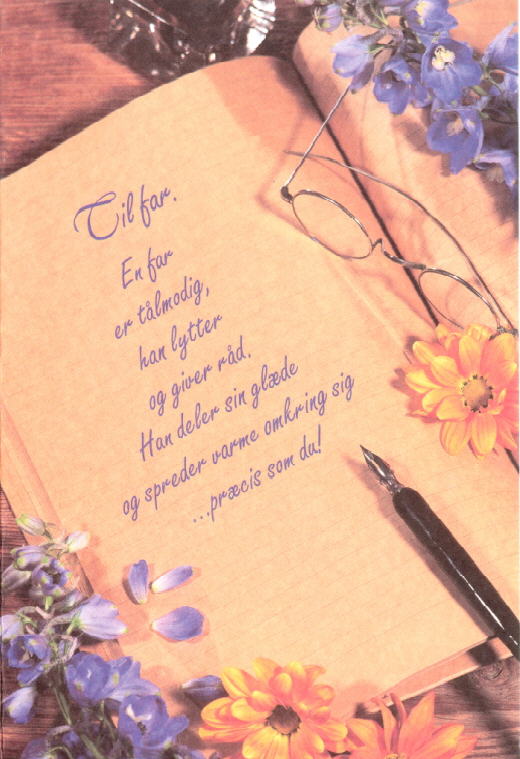 Til far.
En far
er tålmodig,
han lytter
og giver råd.
Han deler sin glæde
og spreder varme omkring sig
...præcis som du!